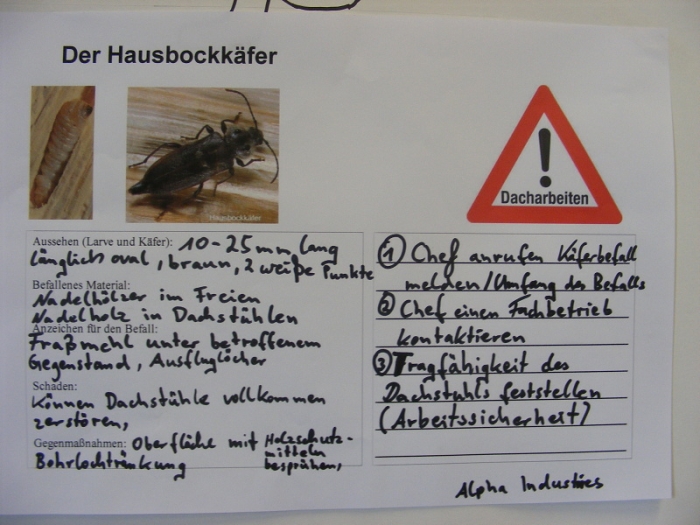 Der Hausbockkäfer
Hausbockkäfer
Dacharbeiten
Aussehen (Larve und Käfer): 10-25mm lang
länglich oval, braun, 2 weiße Punkte
Befallenes Material:
Nadelhölzer im Freien
Nadelholz in Dachstühlen
Anzeichen für den Befall:
Fraßmehl unter betroffenem
Gegenstand, Ausfluglöcher
Schaden:
Können Dachstühle vollkommen
zerstören,
Gegenmaßnahmen: Oberfläche mit Holzschutz-
mitteln
besprühen,
Bohrlochtränkung
① Chef anrufen Käferbefall
melden/Umfang des Befalls
② Chef einen Fachbetrieb
kontaktieren
③ Tragfähigkeit des
Dachstuhls feststellen
(Arbeitssicherheit)
Alpha Industries